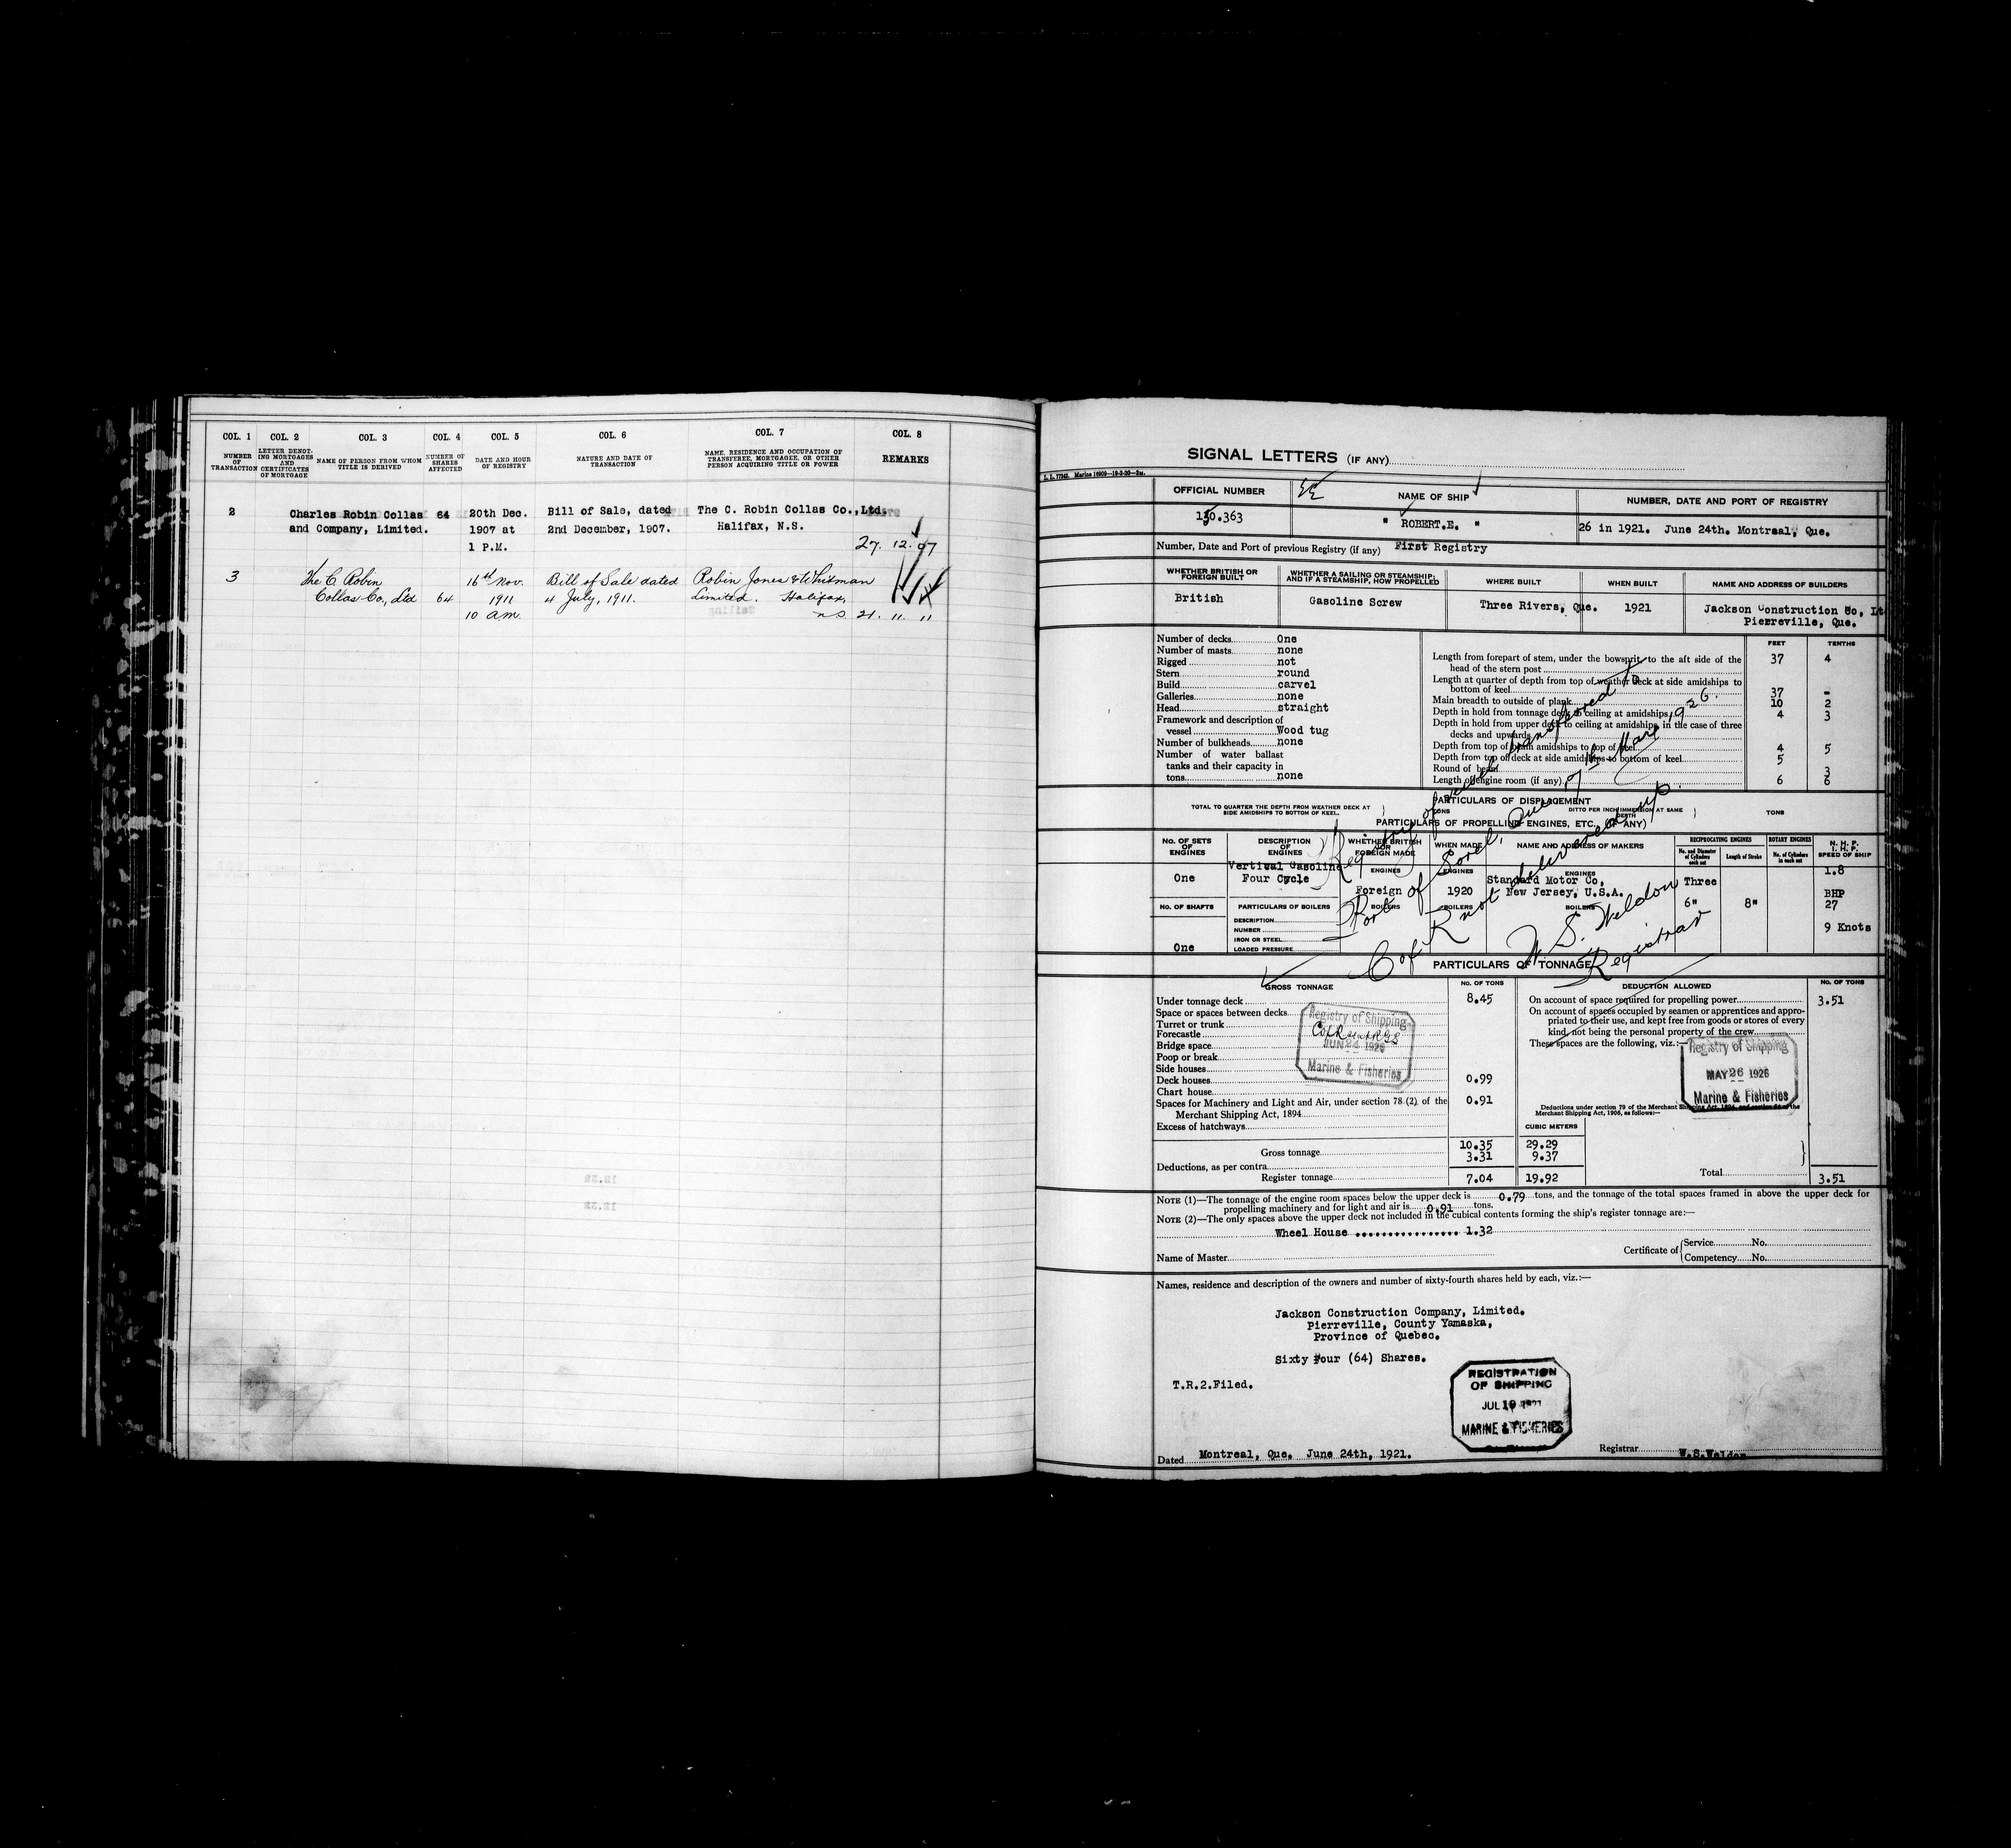 COL. 1 COL. 2 COL. 3 COL. 4 COL. 5 COL. 6 COL. 7 COL. 8
NUMBER OF TRANSACTION
LETTER DENOTING MORTGAGES AND CERTIFICATES OF MORTGAGE
NAME OF PERSON FROM WHOM TITLE IS DERIVED
NUMBER OF SHARES AFFECTED
DATE AND HOUR OF REGISTRY
NATURE AND DATE OF TRANSACTION
NAME, RESIDENCE AND OCCUPATION OF TRANSFEREE, MORTGAGEE, OR OTHER PERSON ACQUIRING TITLE OR POWER
REMARKS
2 Charles Robin Collas 64 20th Dec. Bill of Sale, dated The C. Robin Collas Co.,Ltd.
and Company, Limited. 1907 at 2nd December, 1907. Halifax, N.S.
1 P.M. 27. 12. 07
3 The C Robin 16th Nov. Bill of Sale dated Robin Jones & Whitman
Collas Co., Ltd 64 1911 4 July, 1911. Limited. Halifax,
10 a.m. n.s. 21. 11. 11
SIGNAL LETTERS (IF ANY)
L. L. 77242. Marine 16909—19-3-20—2M.
OFFICIAL NUMBER NAME OF SHIP NUMBER, DATE AND PORT OF REGISTRY
150.363 " ROBERT.E. " 26 in 1921. June 24th. Montreal, Que.
Number, Date and Port of previous Registry (if any) First Registry
WHETHER BRITISH OR FOREIGN BUILT
WHETHER A SAILING OR STEAMSHIP; AND IF A STEAMSHIP, HOW PROPELLED
WHERE BUILT WHEN BUILT NAME AND ADDRESS OF BUILDERS
British Gasoline Screw Three Rivers, Que. 1921 Jackson Construction Co, Lt
Pierreville, Que.
FEET TENTHS
Number of decks One
Number of masts none
Rigged not
Stern round
Build carvel
Galleries none
Head straight
Framework and description of
vessel Wood tug
Number of bulkheads none
Number of water ballast
tanks and their capacity in
tons none
Length from forepart of stem, under the bowsprit, to the aft side of the
head of the stern post 37 4
Length at quarter of depth from top of weather deck at side amidships to
bottom of keel 37 -
Main breadth to outside of plank 10 2
Depth in hold from tonnage deck to ceiling at amidships 4 3
Depth in hold from upper deck to ceiling at amidships, in the case of three
decks and upwards
Depth from top of beam amidships to top of keel 4 5
Depth from top of deck at side amidships to bottom of keel 5
Round of beam 3
Length of engine room (if any) 6 6
PARTICULARS OF DISPLACEMENT
TOTAL TO QUARTER THE DEPTH FROM WEATHER DECK AT
SIDE AMIDSHIPS TO BOTTOM OF KEEL.
TONS
DITTO PER INCH IMMERSION AT SAME
DEPTH
TONS
PARTICULARS OF PROPELLING ENGINES, ETC. (IF ANY)
NO. OF SETS OF ENGINES
DESCRIPTION OF ENGINES
WHETHER BRITISH OR FOREIGN MADE
WHEN MADE
NAME AND ADDRESS OF MAKERS
RECIPROCATING ENGINES ROTARY ENGINES
No. and Diameter of Cylinders each set
Length of Stroke
No. of Cylinders in each set
N. H. P.
I. H. P.
SPEED OF SHIP
One Vertical Gasoline
Four Cycle
ENGINES ENGINES ENGINES
Foreign 1920 Standard Motor Co,
New Jersey, U.S.A.
Three
6" 8"
1.8
BHP
27
9 Knots
NO. OF SHAFTS PARTICULARS OF BOILERS BOILERS BOILERS BOILERS
DESCRIPTION
NUMBER
IRON OR STEEL
LOADED PRESSURE
One
Registry of vessel transferred to
Port of Sorel, Que 17th May 1926.
C of R not delivered up.
W. S. Weldon
Registrar
PARTICULARS OF TONNAGE
GROSS TONNAGE NO. OF TONS DEDUCTION ALLOWED NO. OF TONS
Under tonnage deck 8.45
Space or spaces between decks
Turret or trunk
Forecastle
Bridge space
Poop or break
Side houses
Deck houses 0.99
Chart house
Spaces for Machinery and Light and Air, under section 78 (2) of the
Merchant Shipping Act, 1894 0.91
Excess of hatchways
Gross tonnage 10.35
Deductions, as per contra 3.31
Register tonnage 7.04
CUBIC METERS
29.29
9.37
19.92
On account of space required for propelling power 3.51
On account of spaces occupied by seamen or apprentices and appro-
priated to their use, and kept free from goods or stores of every
kind, not being the personal property of the crew
These spaces are the following, viz.:—
Deductions under section 79 of the Merchant Shipping Act, 1894, and section 54 of the
Merchant Shipping Act, 1906, as follows:—
Total 3.51
Registry of Shipping
JUN 24 1926
Marine & Fisheries
Registry of Shipping
MAY 26 1926
Marine & Fisheries
NOTE (1)—The tonnage of the engine room spaces below the upper deck is 0.79 tons, and the tonnage of the total spaces framed in above the upper deck for
propelling machinery and for light and air is 0.91 tons.
NOTE (2)—The only spaces above the upper deck not included in the cubical contents forming the ship's register tonnage are:—
Wheel House ................ 1.32
Name of Master
Certificate of { Service No.
Competency No.
Names, residence and description of the owners and number of sixty-fourth shares held by each, viz.:—
Jackson Construction Company, Limited.
Pierreville, County Yamaska,
Province of Quebec.
Sixty Four (64) Shares.
T.R.2.Filed.
REGISTRATION
OF SHIPPING
JUL 19 1921
MARINE & FISHERIES
Dated Montreal, Que. June 24th, 1921. Registrar W.S.Weldon